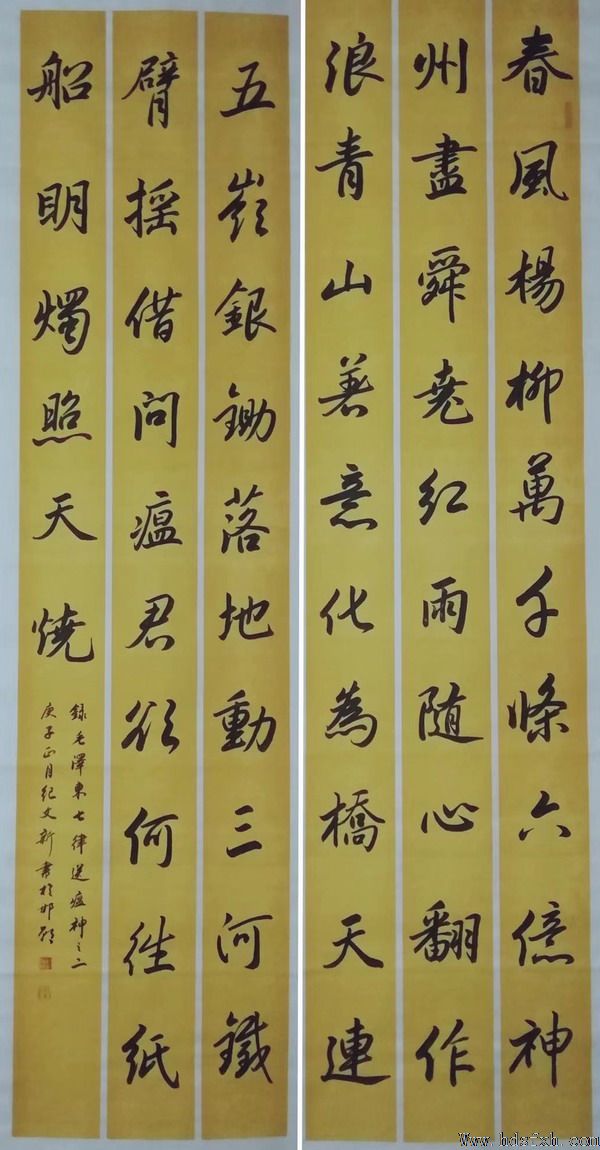 春風楊柳萬千條六億神
州盡舜堯紅雨随心翻作
浪青山著意化為橋天連
五嶺銀鋤落地動三河鐵
臂摇借問瘟君欲何往紙
船明燭照天燒
録毛澤東七律送瘟神之二
庚子正月紀文新書於邯鄲
Www.hdsfxh.com